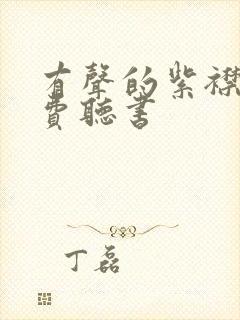 有聲的紫襟
費聽書
丁磊